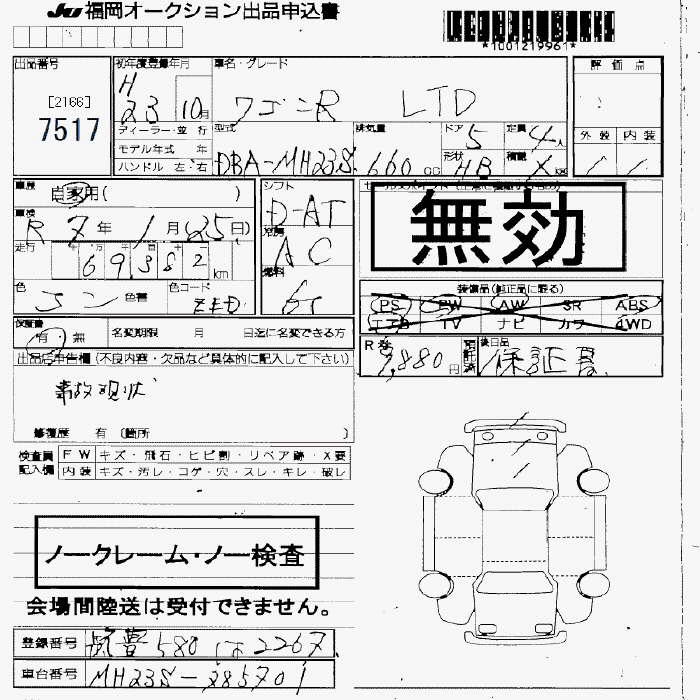 JU 福岡オークション出品申込書
*1001219961*
出品番号
[2166]
7517
初年度登録年月
H
23 10月
車名・グレード
ワゴンR LTD
評価点
外装 内装
ディーラー・並行
モデル年式 年
ハンドル 左・右
型式
DBA-MH23S
排気量
660 CC
ドア
5
定員
4人
形状
HB
積載
X kg
車歴
自家用( )
車検
R 7年 1月(25日)
走行
69,382 km
色
コン
色替
色コード
ZED
シフト
D-AT
冷房
AC
燃料
無効
装備品(純正品に限る)
PS PW AW SR ABS
エアB TV ナビ カワ 4WD
保証書
有・無
名変期限 月 日迄に名変できる方
R券
円
預託済
後日品
出品店申告欄(不良内容・欠品など具体的に記入して下さい)
事故現状
修復歴 有 〔箇所 〕
検査員記入欄
FW キズ・飛石・ヒビ割・リペア跡・X要
内装 キズ・汚レ・コゲ・穴・スレ・キレ・破レ
ノークレーム・ノー検査
会場間陸送は受付できません。
登録番号
筑豊 580 は 2267
車台番号
MH23S-785701